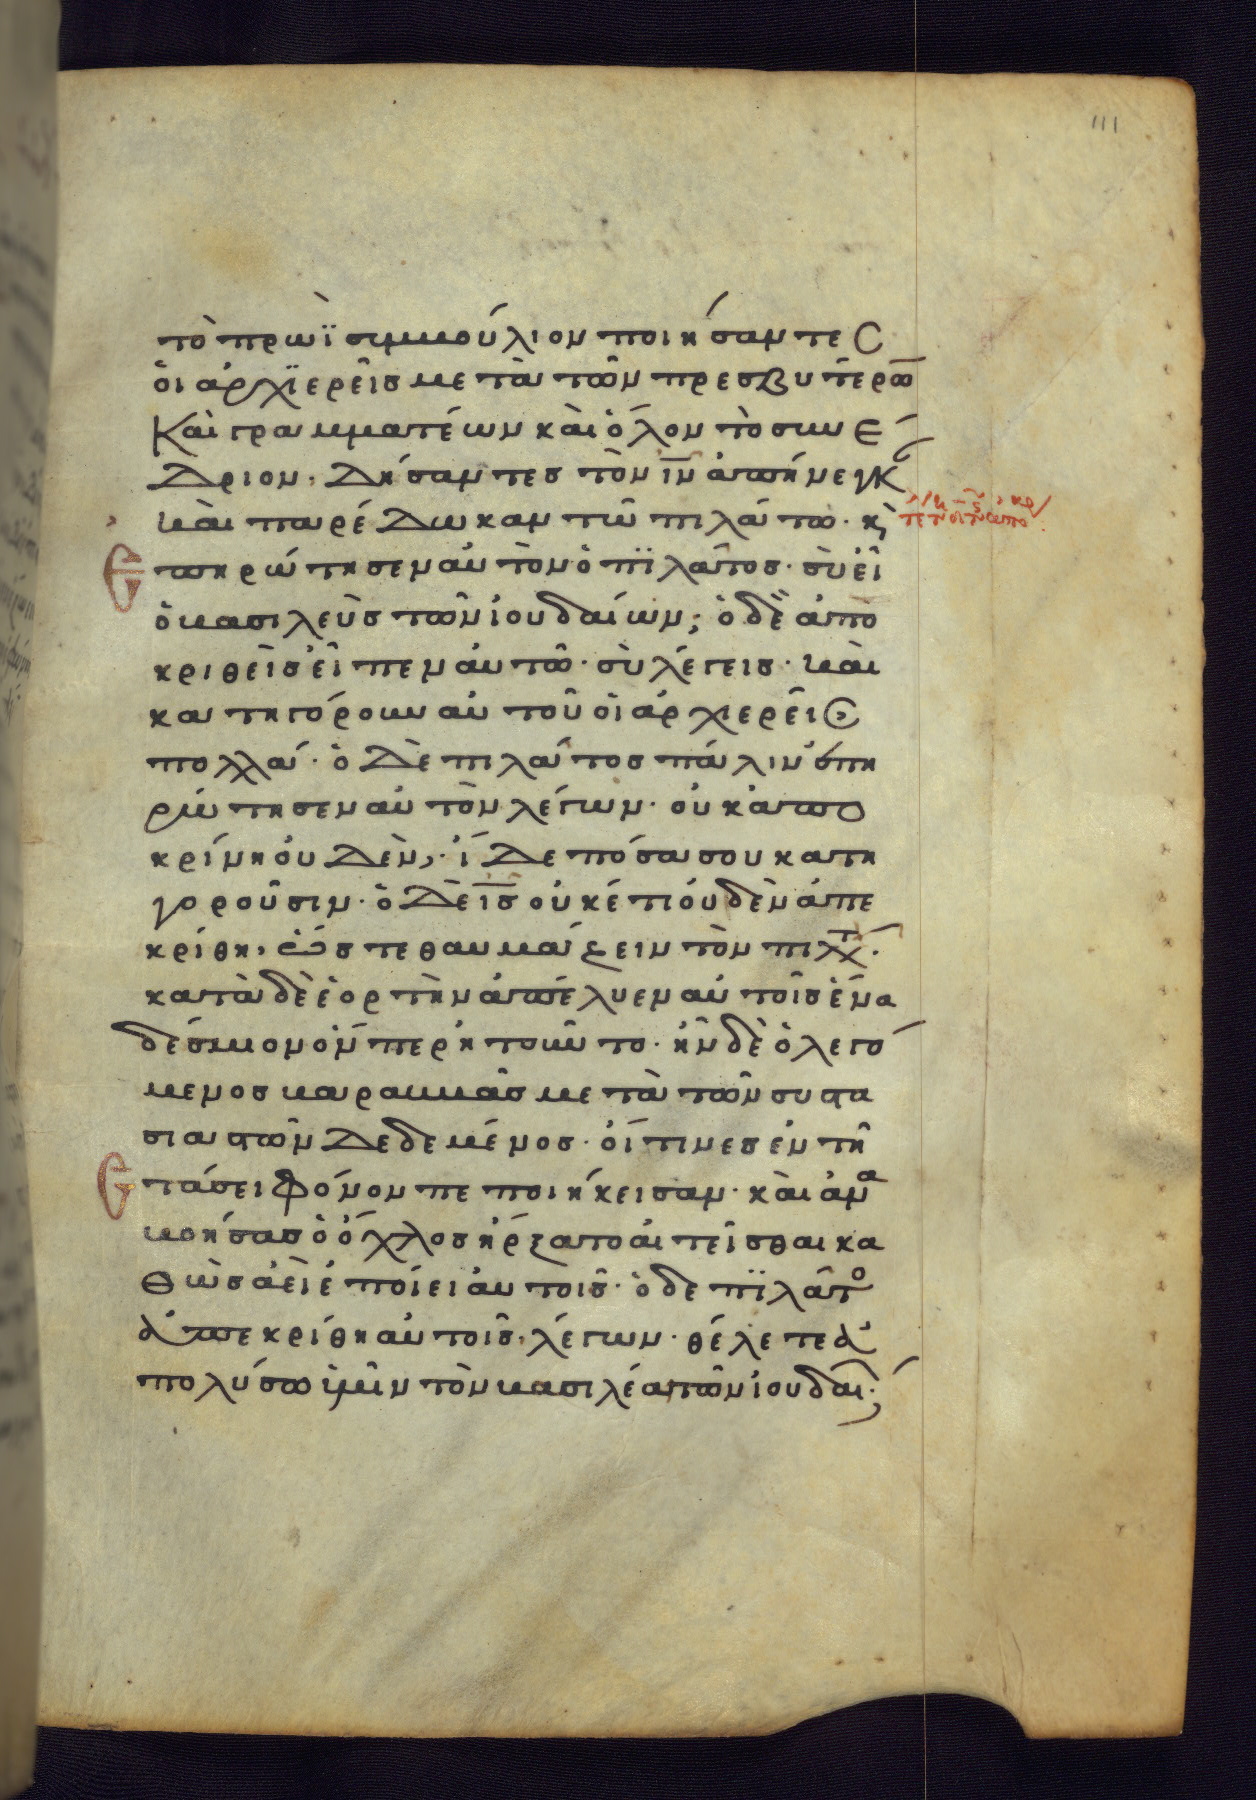 111
τὸ πρωῒ συμβούλιον ποιήσαντες
ὁι ἀρχϊερεῖς μετὰ τῶν πρεσβυτέρω̅
Καὶ γραμματέων καὶ ὅλον τὸ συνέ
δριον. Δήσαντες τὸν ι̅ν̅ ἀπήνεγκ
καὶ παρέδωκαν τῶ πιλάτω. κ̀
Ἐπηρώτησεν αὐτὸν ὁ πϊλᾶτος. σὺ εἶ
ὁ βασιλεὺς τῶν ἰουδαίων; ὁ δὲ ἀπο
κριθεὶς εἶπεν αὐτῶ. σὺ λέγεις. καὶ
κατηγόρουν αὐτοῦ ὁι ἀρχιερεῖς
πολλά. ὁ Δὲ πιλάτος πάλιν ἐπη
ρώτησεν αὐτὸν λέγων. οὐκ ἀπο
κρίνη οὐδὲν; ἴδε πόσα σου κατη
γοροῦσιν. ὁ Δὲ ι̅ς̅ οὐκέτι ὀυδὲν ἀπε
κρίθη, ὥστε θαυμάζειν τὸν πιλ̅.
κατὰ δὲ ἑορτὴν ἀπέλυεν αὐτοῖς ἕνα
δέσμιον ὃνπερ ἠτοῦντο. ἦν δὲ ὁ λεγό
μενος βαραββᾶς μετὰ τῶν συστα
σιαστῶν Δεδεμένος. ὅιτινες ἐν τῆ
στάσει φόνον πεποιήκεισαν. καὶ ἀνα
βοήσας ὁ ὄχλος ἤρξατο αἰτεῖσθαι κα
θὼς ἀεὶ ἐποίει αὐτοῖς. ὁ δε πϊλᾶτο
ἀπεκρίθη αὐτοῖς, λέγων. θέλετε ἀ
πολύσω ὑμῖν τὸν βασιλέα τῶν ἰουδαί;